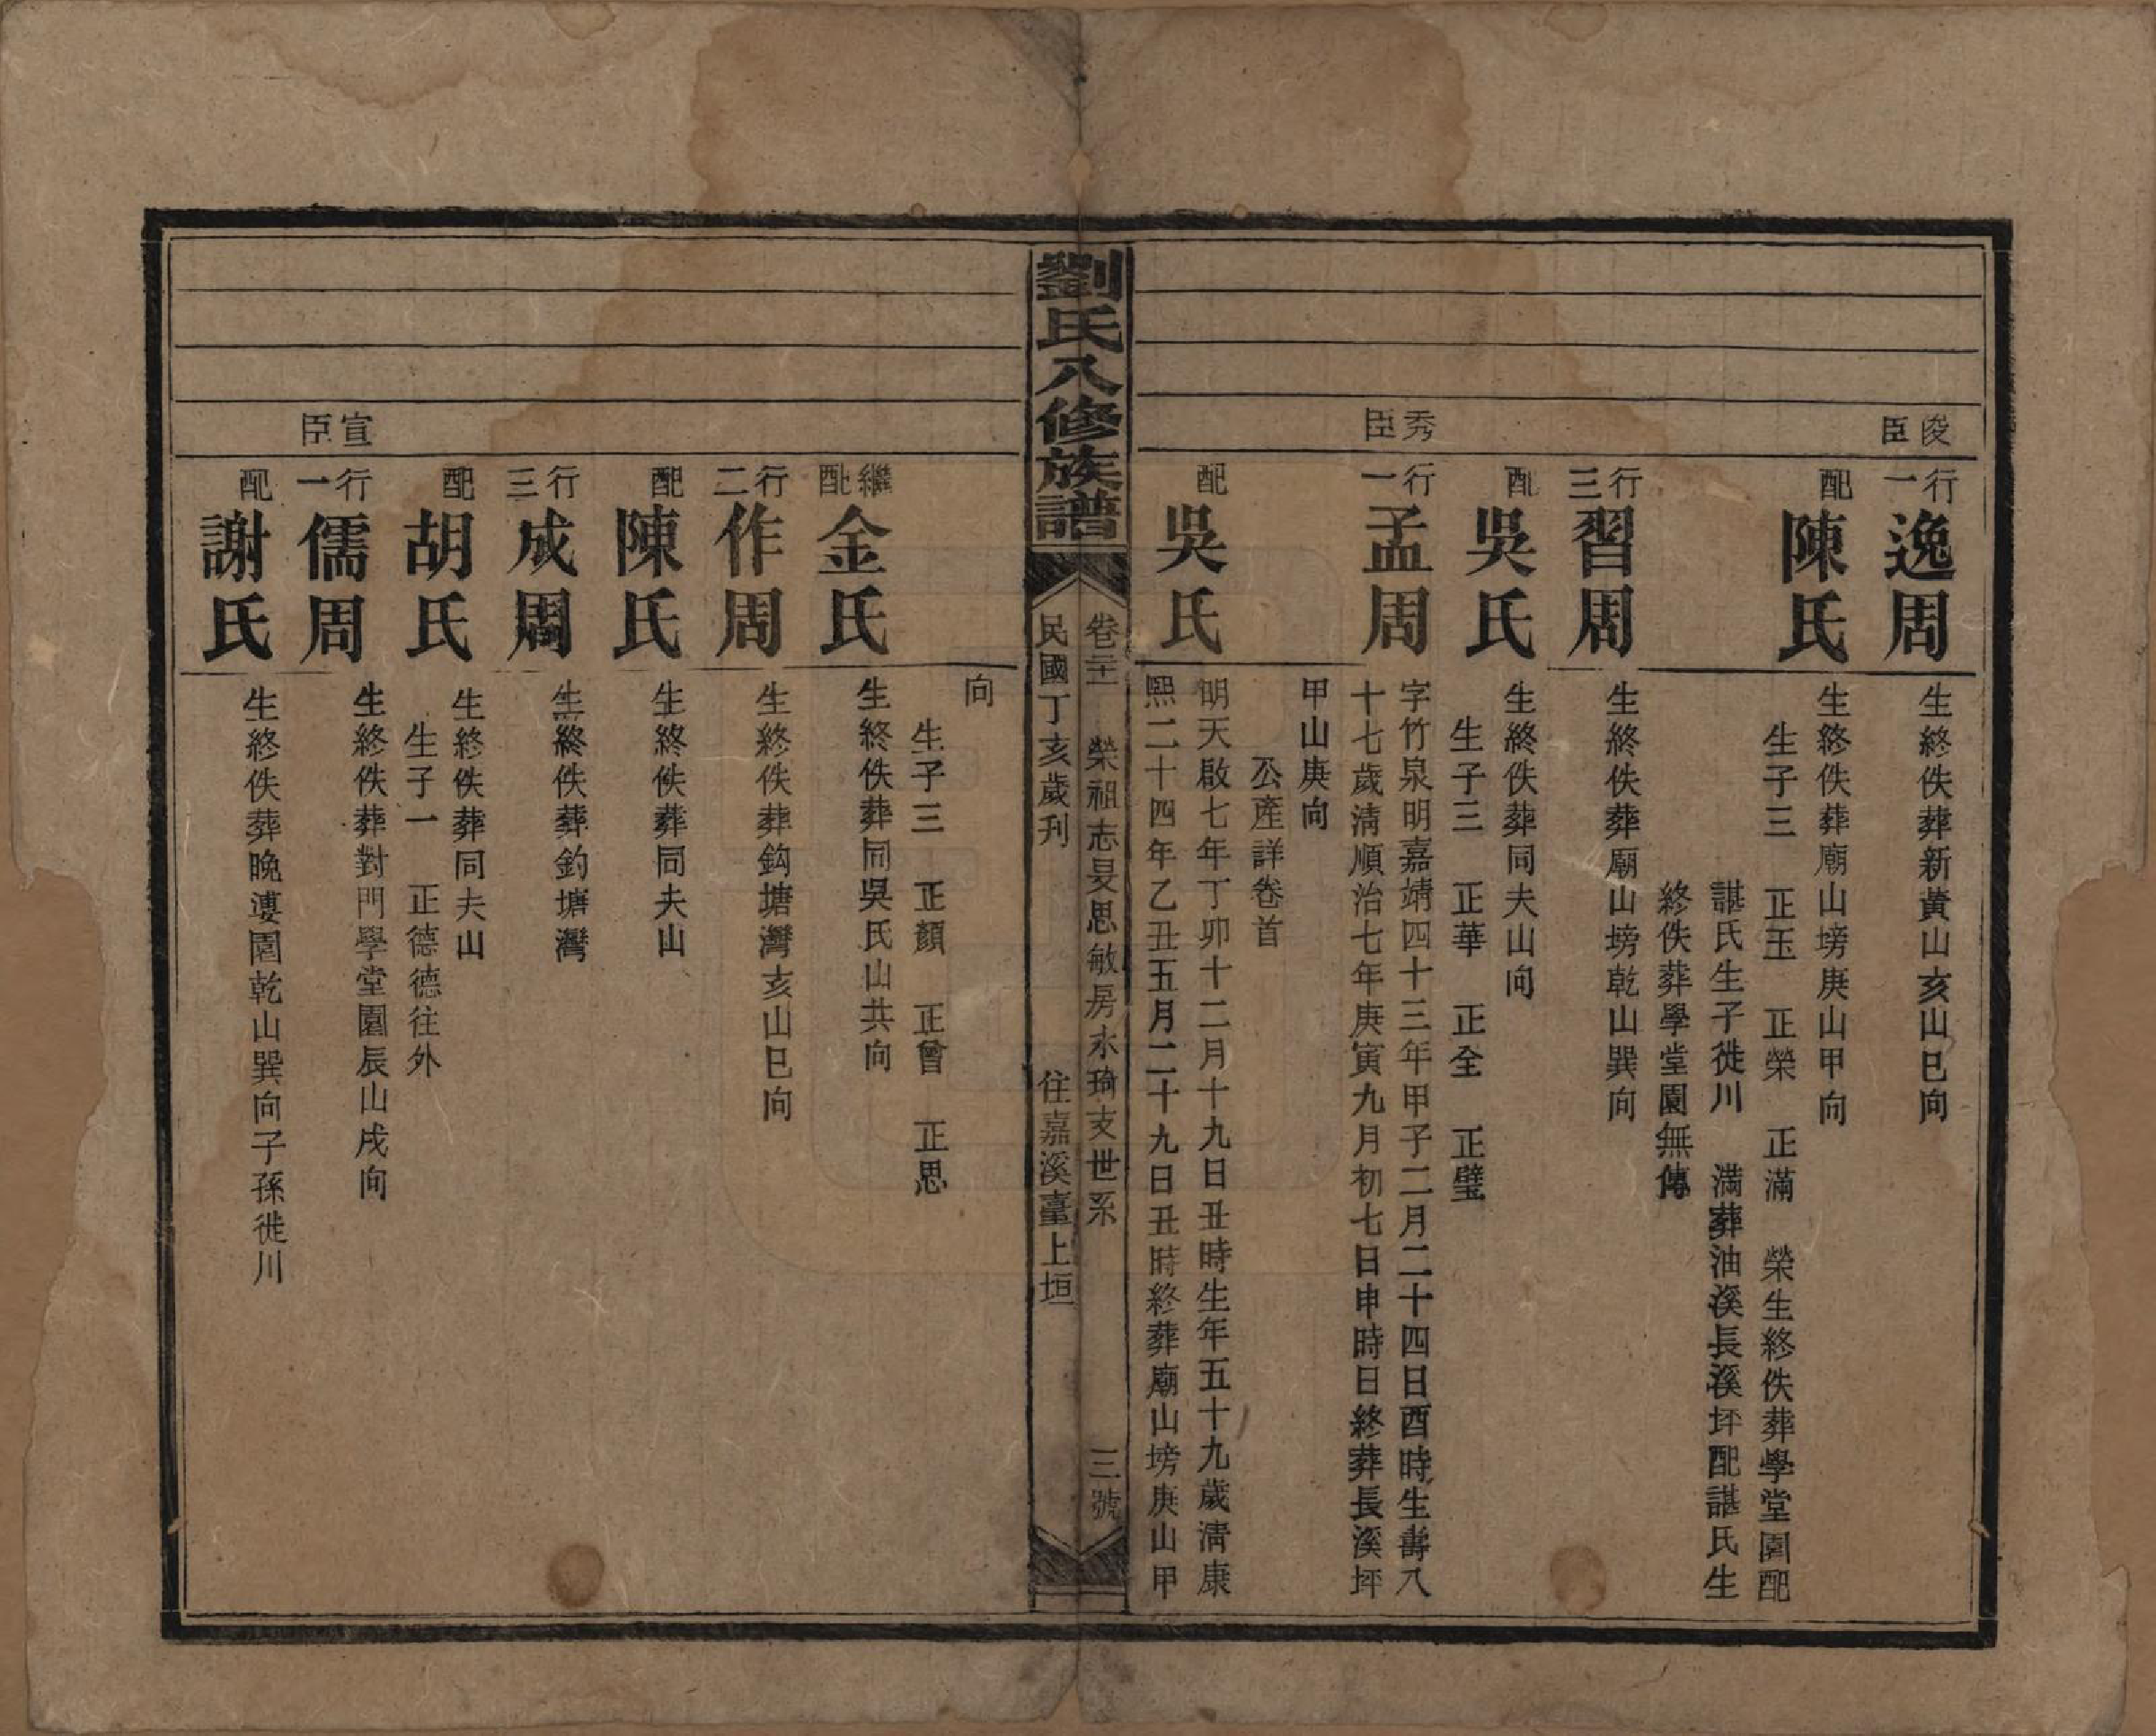 俊臣
行一
逸周
生終佚葬新黃山亥山巳向
配
陳氏
生終佚葬廟山塝庚山甲向
生子三　正玉　正榮　正滿　榮生終佚葬學堂園配
諶氏生子徙川　滿葬油溪長溪坪配諶氏生
終佚葬學堂園無傳
行三
習周
生終佚葬廟山塝乾山巽向
配
吳氏
生終佚葬同夫山向
生子三　正華　正全　正璧
秀臣
行一
孟周
字竹泉明嘉靖四十三年甲子二月二十四日酉時生壽八
十七歲清順治七年庚寅九月初七日申時日終葬長溪坪
甲山庚向
公產詳卷首
配
吳氏
明天啟七年丁卯十二月十九日丑時生年五十九歲清康
熙二十四年乙丑五月二十九日丑時終葬廟山塝庚山甲
劉氏八修族譜
卷二十　榮祖志旻思敏房永琦支世系　三號
民國丁亥歲刊　住嘉溪臺上垣
向
生子三　正顏　正曾　正思
繼配
金氏
生終佚葬同吳氏山共向
行二
作周
生終佚葬鈎塘灣亥山巳向
配
陳氏
生終佚葬同夫山
行三
成周
生終佚葬釣塘灣
配
胡氏
生終佚葬同夫山
生子一　正德德往外
宣臣
行一
儒周
生終佚葬對門學堂園辰山戌向
配
謝氏
生終佚葬晚遱園乾山巽向子孫徙川